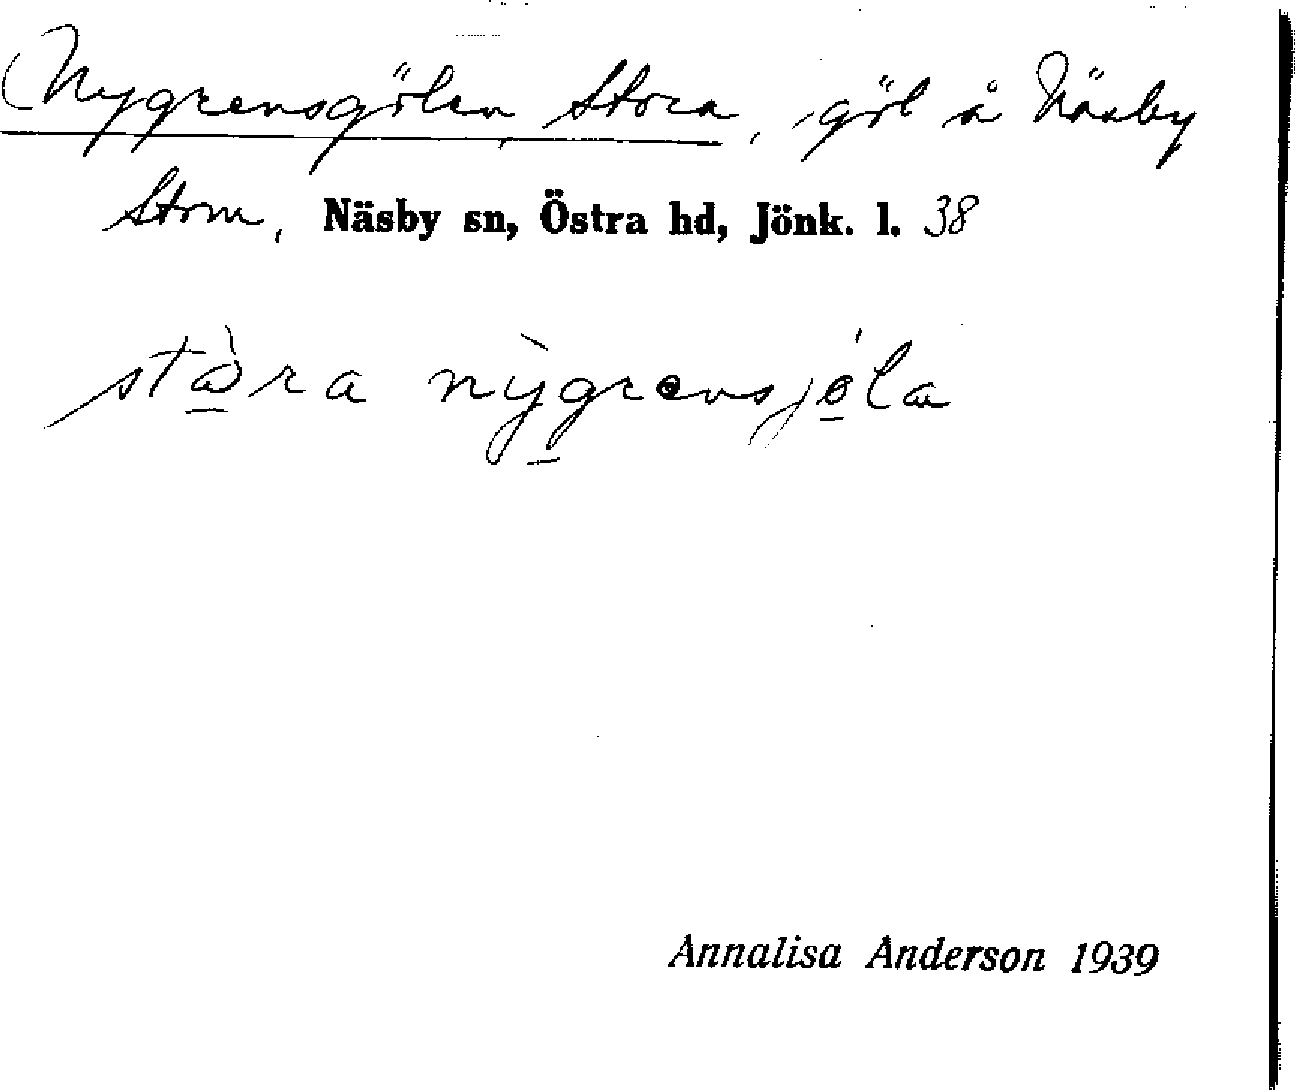 Nygrensgölen, Stora, göl å Näsby
Stom, Näsby sn, Östra hd, Jönk. l. 38
stὼra nỳgrensjöla
Annalisa Anderson 1939